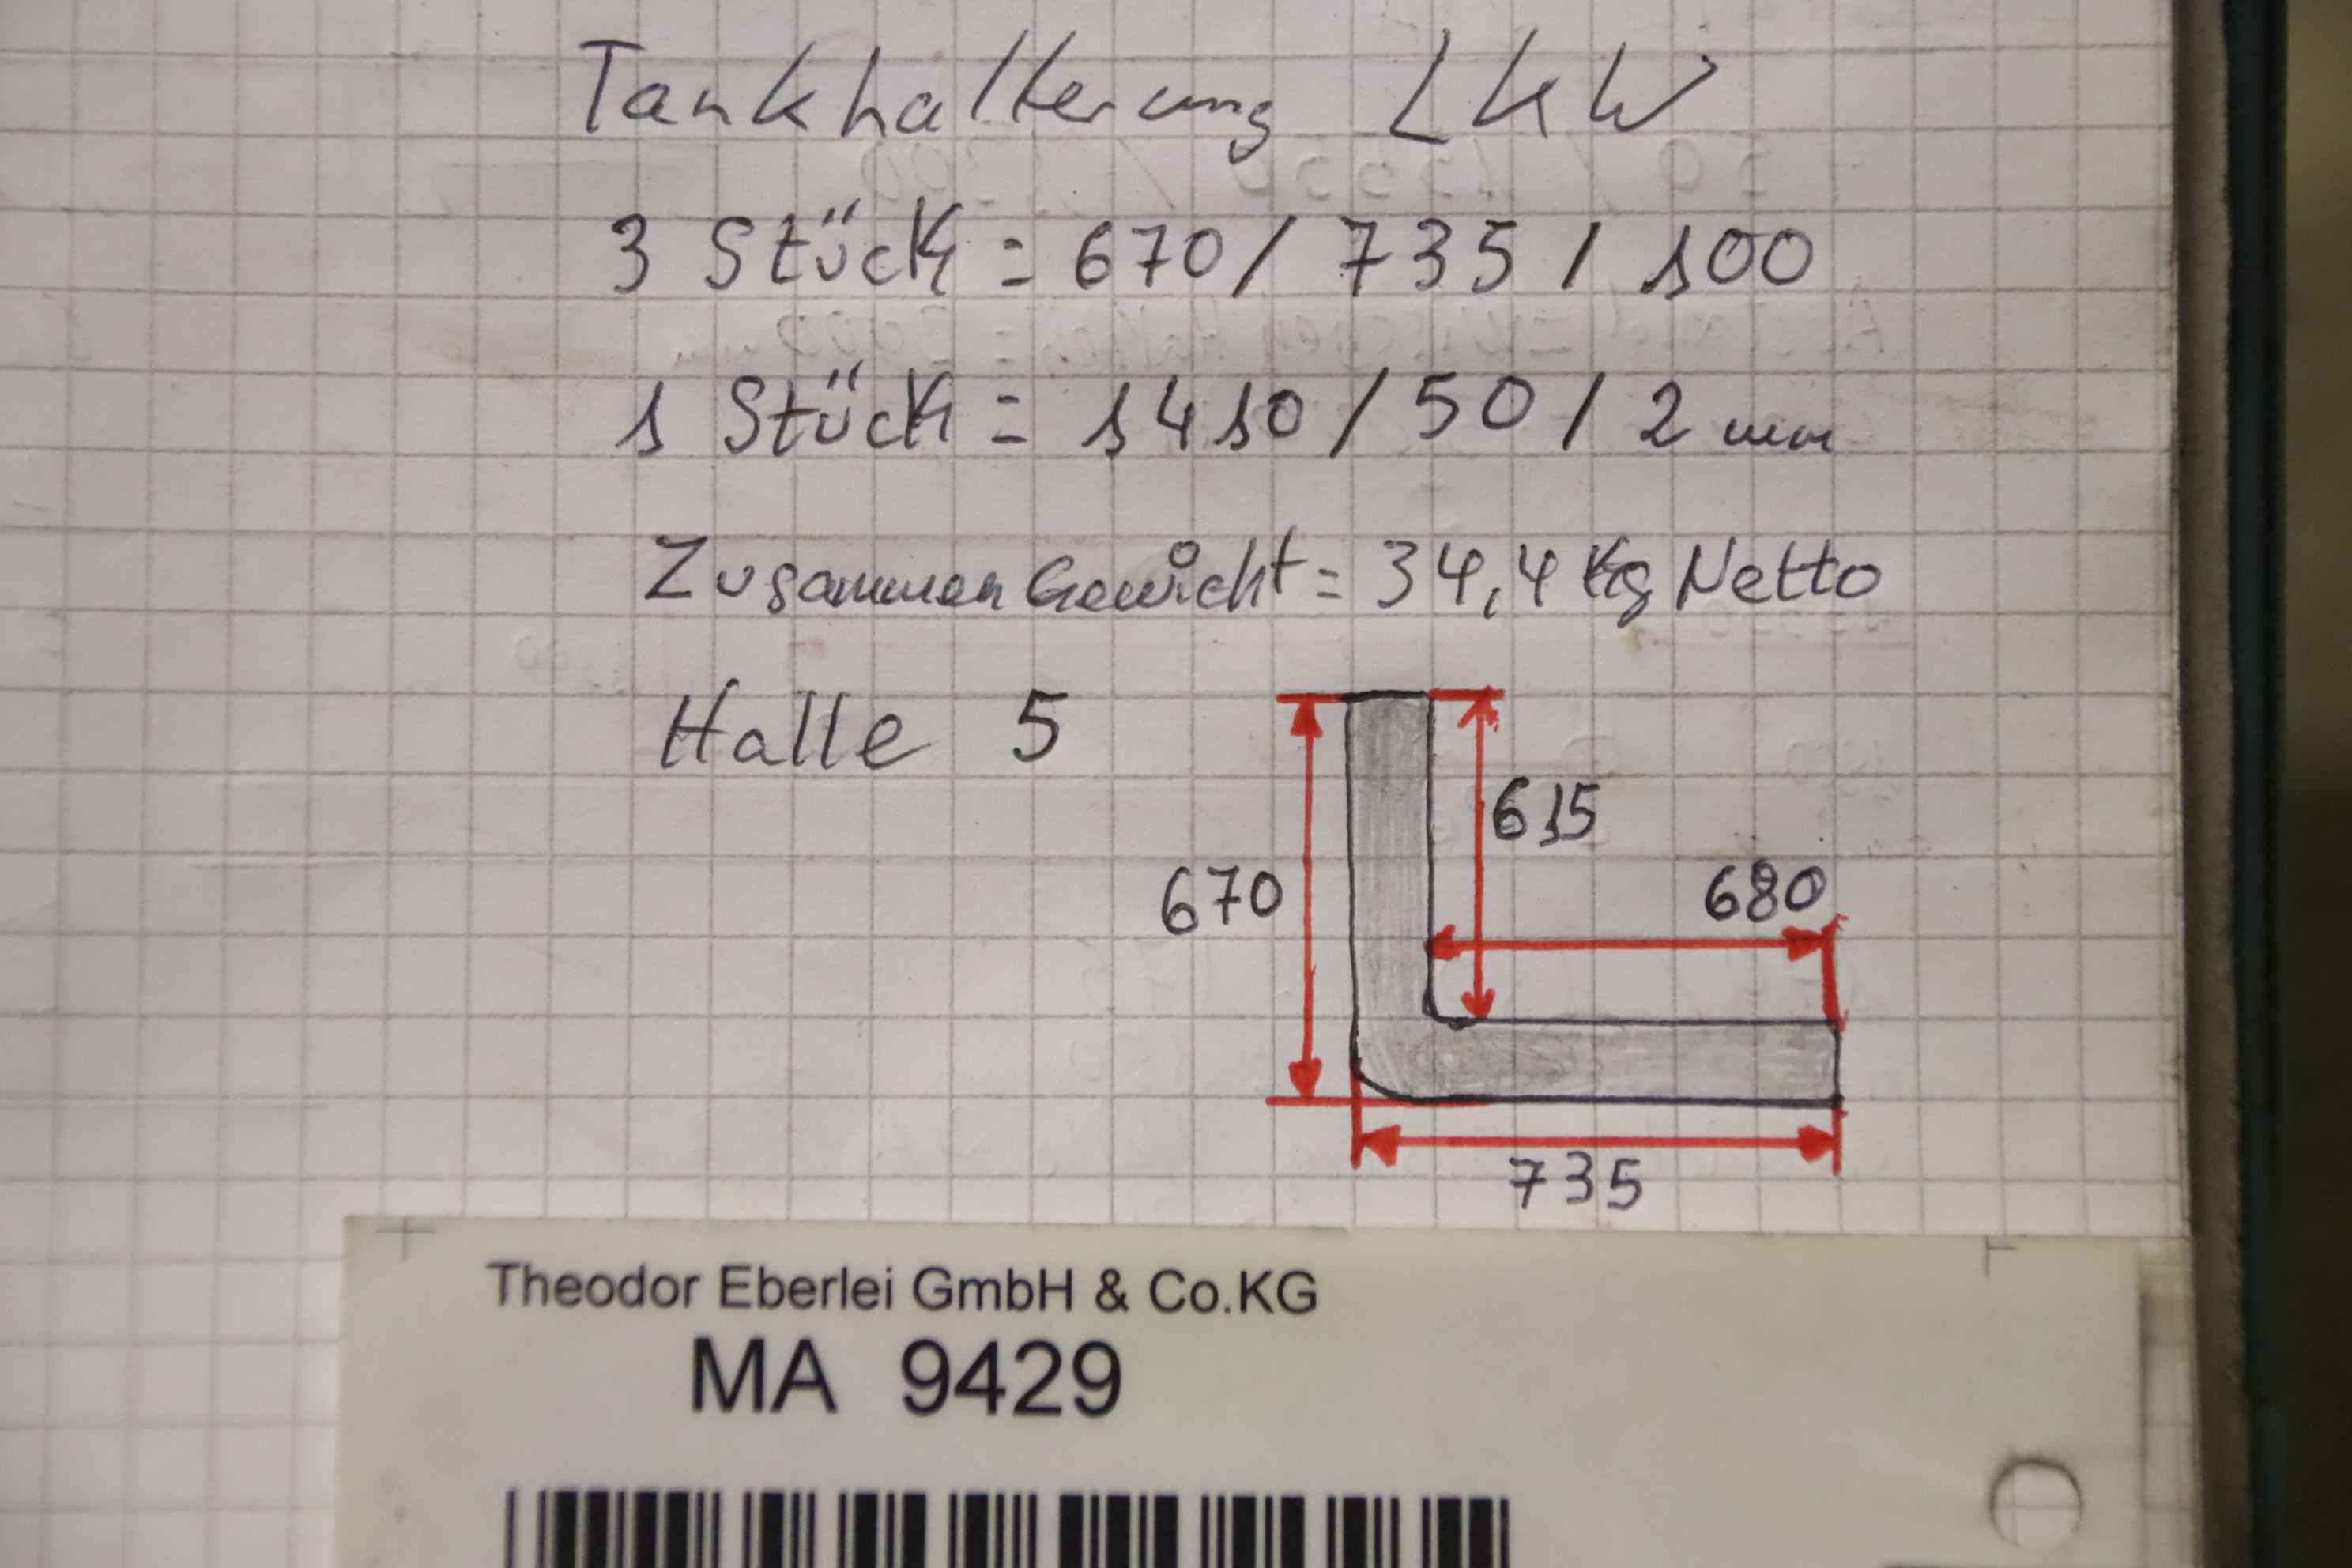 Tankhalterung LKW
3 Stück = 670 / 735 / 100
1 Stück = 1410 / 50 / 2 mm
Zusammen Gewicht = 34,4 Kg Netto
Halle 5
615
670
680
735
Theodor Eberlei GmbH & Co.KG
MA 9429